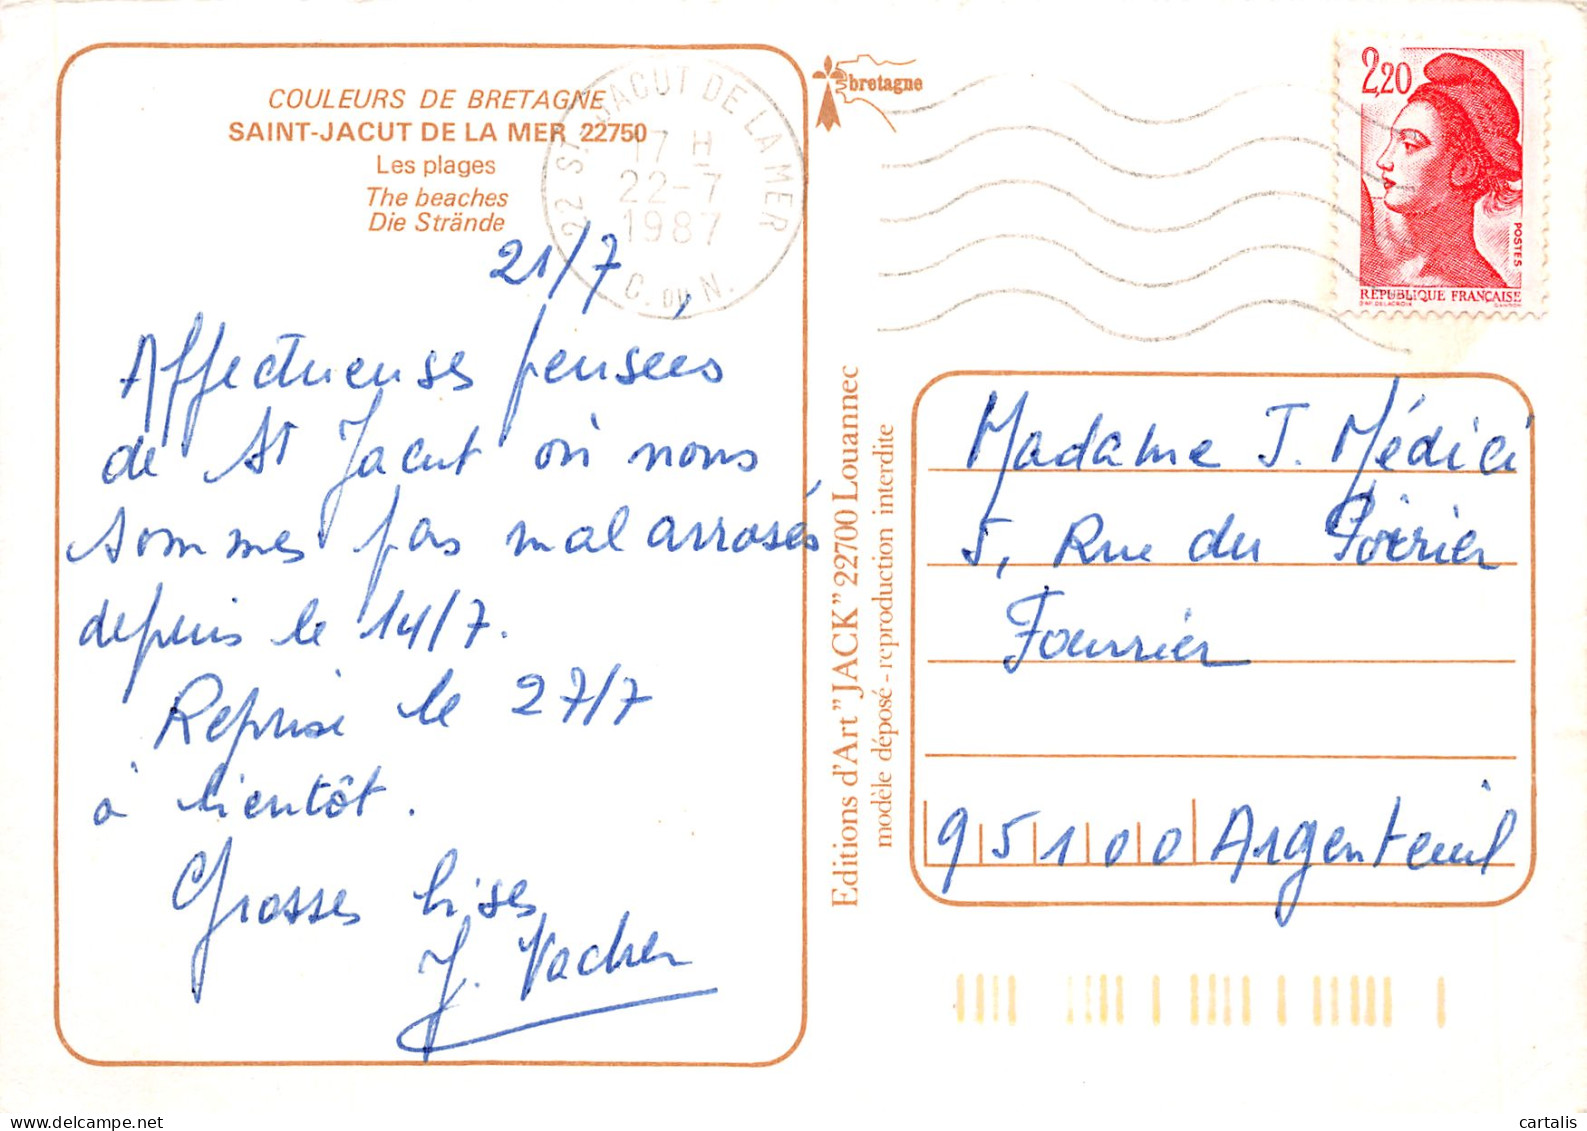 COULEURS DE BRETAGNE
SAINT-JACUT DE LA MER 22750
Les plages
The beaches
Die Strände
22 ST JACUT DE LA MER
17 H
22-7
1987
C. DU N.
bretagne
2,20
POSTES
RÉPUBLIQUE FRANÇAISE
21/7
Affectueuses pensées
de St Jacut où nous
sommes pas mal arrosés
depuis le 14/7.
Reprise le 27/7
à bientôt.
Grosses bises
J. Vacher
Editions d'Art "JACK" 22700 Louannec
modèle déposé - reproduction interdite
Madame J. Médici
5, Rue du Poirier
Fourrier
95100 Argenteuil
cartalis